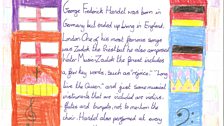 George Frederick Handel was born in
Germany but ended up living in England,
London. One of his most famous songs
was Zadok the Priest but he also composed
Water Music. Zadok the Priest includes
a few key words, such as "rejoice", "Long
live the Queen" and just some musical
instruments that are included are violins,
flutes and trumpets, not to mention the
choir. Handel also performed at every